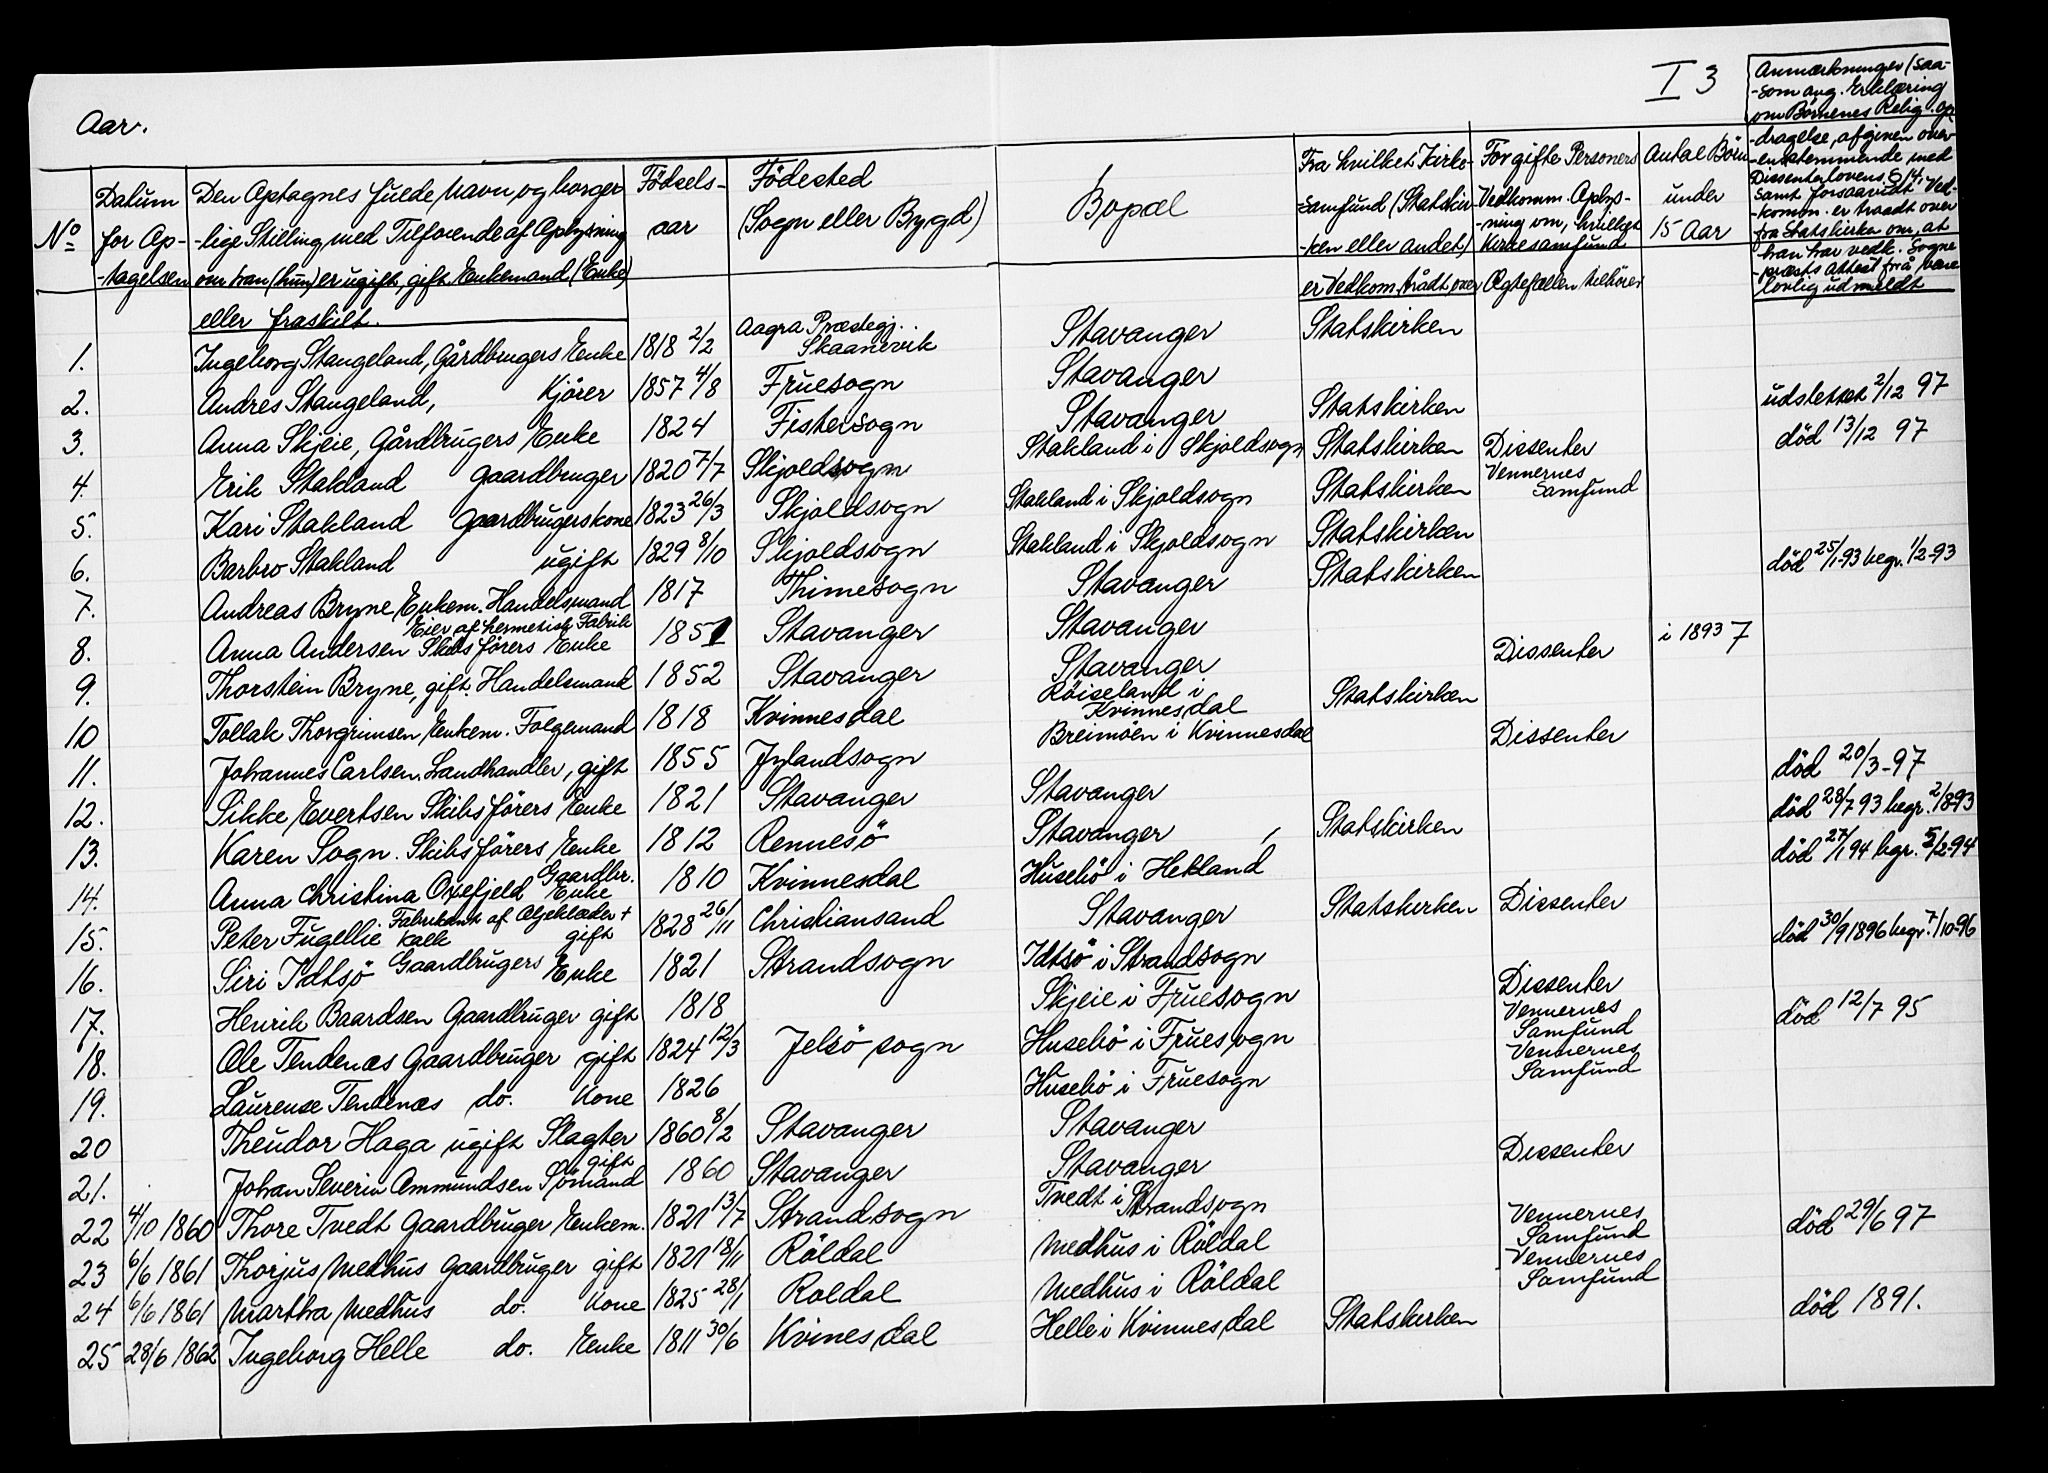 I 3
Aar.
No
Datum for Op-tagelsen
Den Optagnes fulde Navn og borger-lige Stilling med Tilføiende af Oplysning om han (hun) er ugift, gift, Enkemand (Enke) eller fraskilt.
Fødsels-aar
Födested (Sogn eller Bygd)
Bopæl
Fra hvilket Kirke-samfund (Statskir-ken eller andet) er Vedkom. trådt over
For gifte Personers Vedkomm. Oplys-ning om, hvilket Kirkesamfund Ægtefællen tilhører
Antal Börn under 15 Aar
Anmærkninger (saa-som ang. Erklæring om Børnenes Relig. Op-dragelse, afgiven over-ensstemmende med Dissenterlovens § 14, samt forsaavidt Ved-komm. er traadt over fra Statskirken om, at han har vedk. Sogne-præsts Attest for å være lovlig udmeldt
1. Ingeborg Stangeland, Gårdbrugers Enke 1818 2/2 Aagra Præstegj. Skaanevik Stavanger Statskirken
2. Andres Stangeland, Kjörer 1857 4/8 Fruesogn Stavanger udslettet 2/12 97
3. Anna Skjeie, Gårdbrugers Enke 1824 Fistersogn Stavanger Statskirken död 13/12 97
4. Erik Stakland Gaardbruger 1820 7/7 Skjoldsogn Stakland i Skjoldsogn Statskirken Dissenter
5. Kari Stakland Gaardbrugerskone 1823 26/3 Skjoldsogn Stakland i Skjoldsogn Statskirken Vennernes Samfund
6. Barbro Stakland ugift 1829 8/10 Skjoldsogn Stakland i Skjoldsogn Statskirken
7. Andreas Bryne, Enkem. Handelsmand Eier af hermetisk Fabrik 1817 Thimesogn Stavanger Statskirken död 25/1-93 begr. 1/2-93
8. Anna Andersen Skibsförers Enke 1851 Stavanger Stavanger
9. Thorstein Bryne, gift. Handelsmand 1852 Stavanger Stavanger Dissenter i 1893 7
10 Tollak Thorgrimsen, Enkem. Folgemand 1818 Kvinnesdal Röiseland i Kvinnesdal Statskirken
11. Johannes Carlsen, Landhandler, gift 1855 Fylandsogn Breimöen i Kvinnesdal Dissenter
12. Sikke Evertsen Skibsförers Enke 1821 Stavanger Stavanger död 20/3-97
13. Karen Sogn. Skibsförers Enke 1812 Rennesö Stavanger Statskirken död 28/7 93 begr. 2/8-93
14. Anna Christina Oxefjeld Gaardbr. Enke 1810 Kvinnesdal Husebö i Hetland död 27/1 94 bgr. 5/2-94
15. Peter Fugellie Fabrikant af Oljeklæder + Kalk gift 1828 26/11 Christiansand Stavanger Statskirken Dissenter
16. Siri Idtsö Gaardbrugers Enke 1821 Strandsogn Idtsö i Strandsogn död 30/9 1896 begr. 7/10-96
17. Henrik Baardsen Gaardbruger gift 1818 Skjeie i Fruesogn Dissenter
18. Ole Tendenæs Gaardbruger gift 1824 12/3 Jelsö sogn Husebö i Fruesogn Vennernes Samfund död 12/7 95
19. Laurense Tendenæs do. Kone 1826 Husebö i Fruesogn Vennernes Samfund
20 Theudor Haga ugift Slagter 1860 8/2 Stavanger Stavanger
21. Johan Severin Ommundsen gift Sömand 1860 Stavanger Stavanger Dissenter
22 4/10 1860 Thore Tvedt Gaardbruger Enkem. 1821 13/7 Strandsogn Tvedt i Strandsogn
23 6/6 1861 Thorjus Medhus Gaardbruger gift 1821 18/11 Röldal Medhus i Röldal Vennernes Samfund död 29/6 97
24 6/6 1861 Martha Medhus do. Kone 1825 28/1 Roldal Medhus i Röldal Vennernes Samfund
25 28/6 1862 Ingeborg Helle do. Enke 1811 30/6 Kvinesdal Helle i Kvinnesdal Statskirken död 1891.